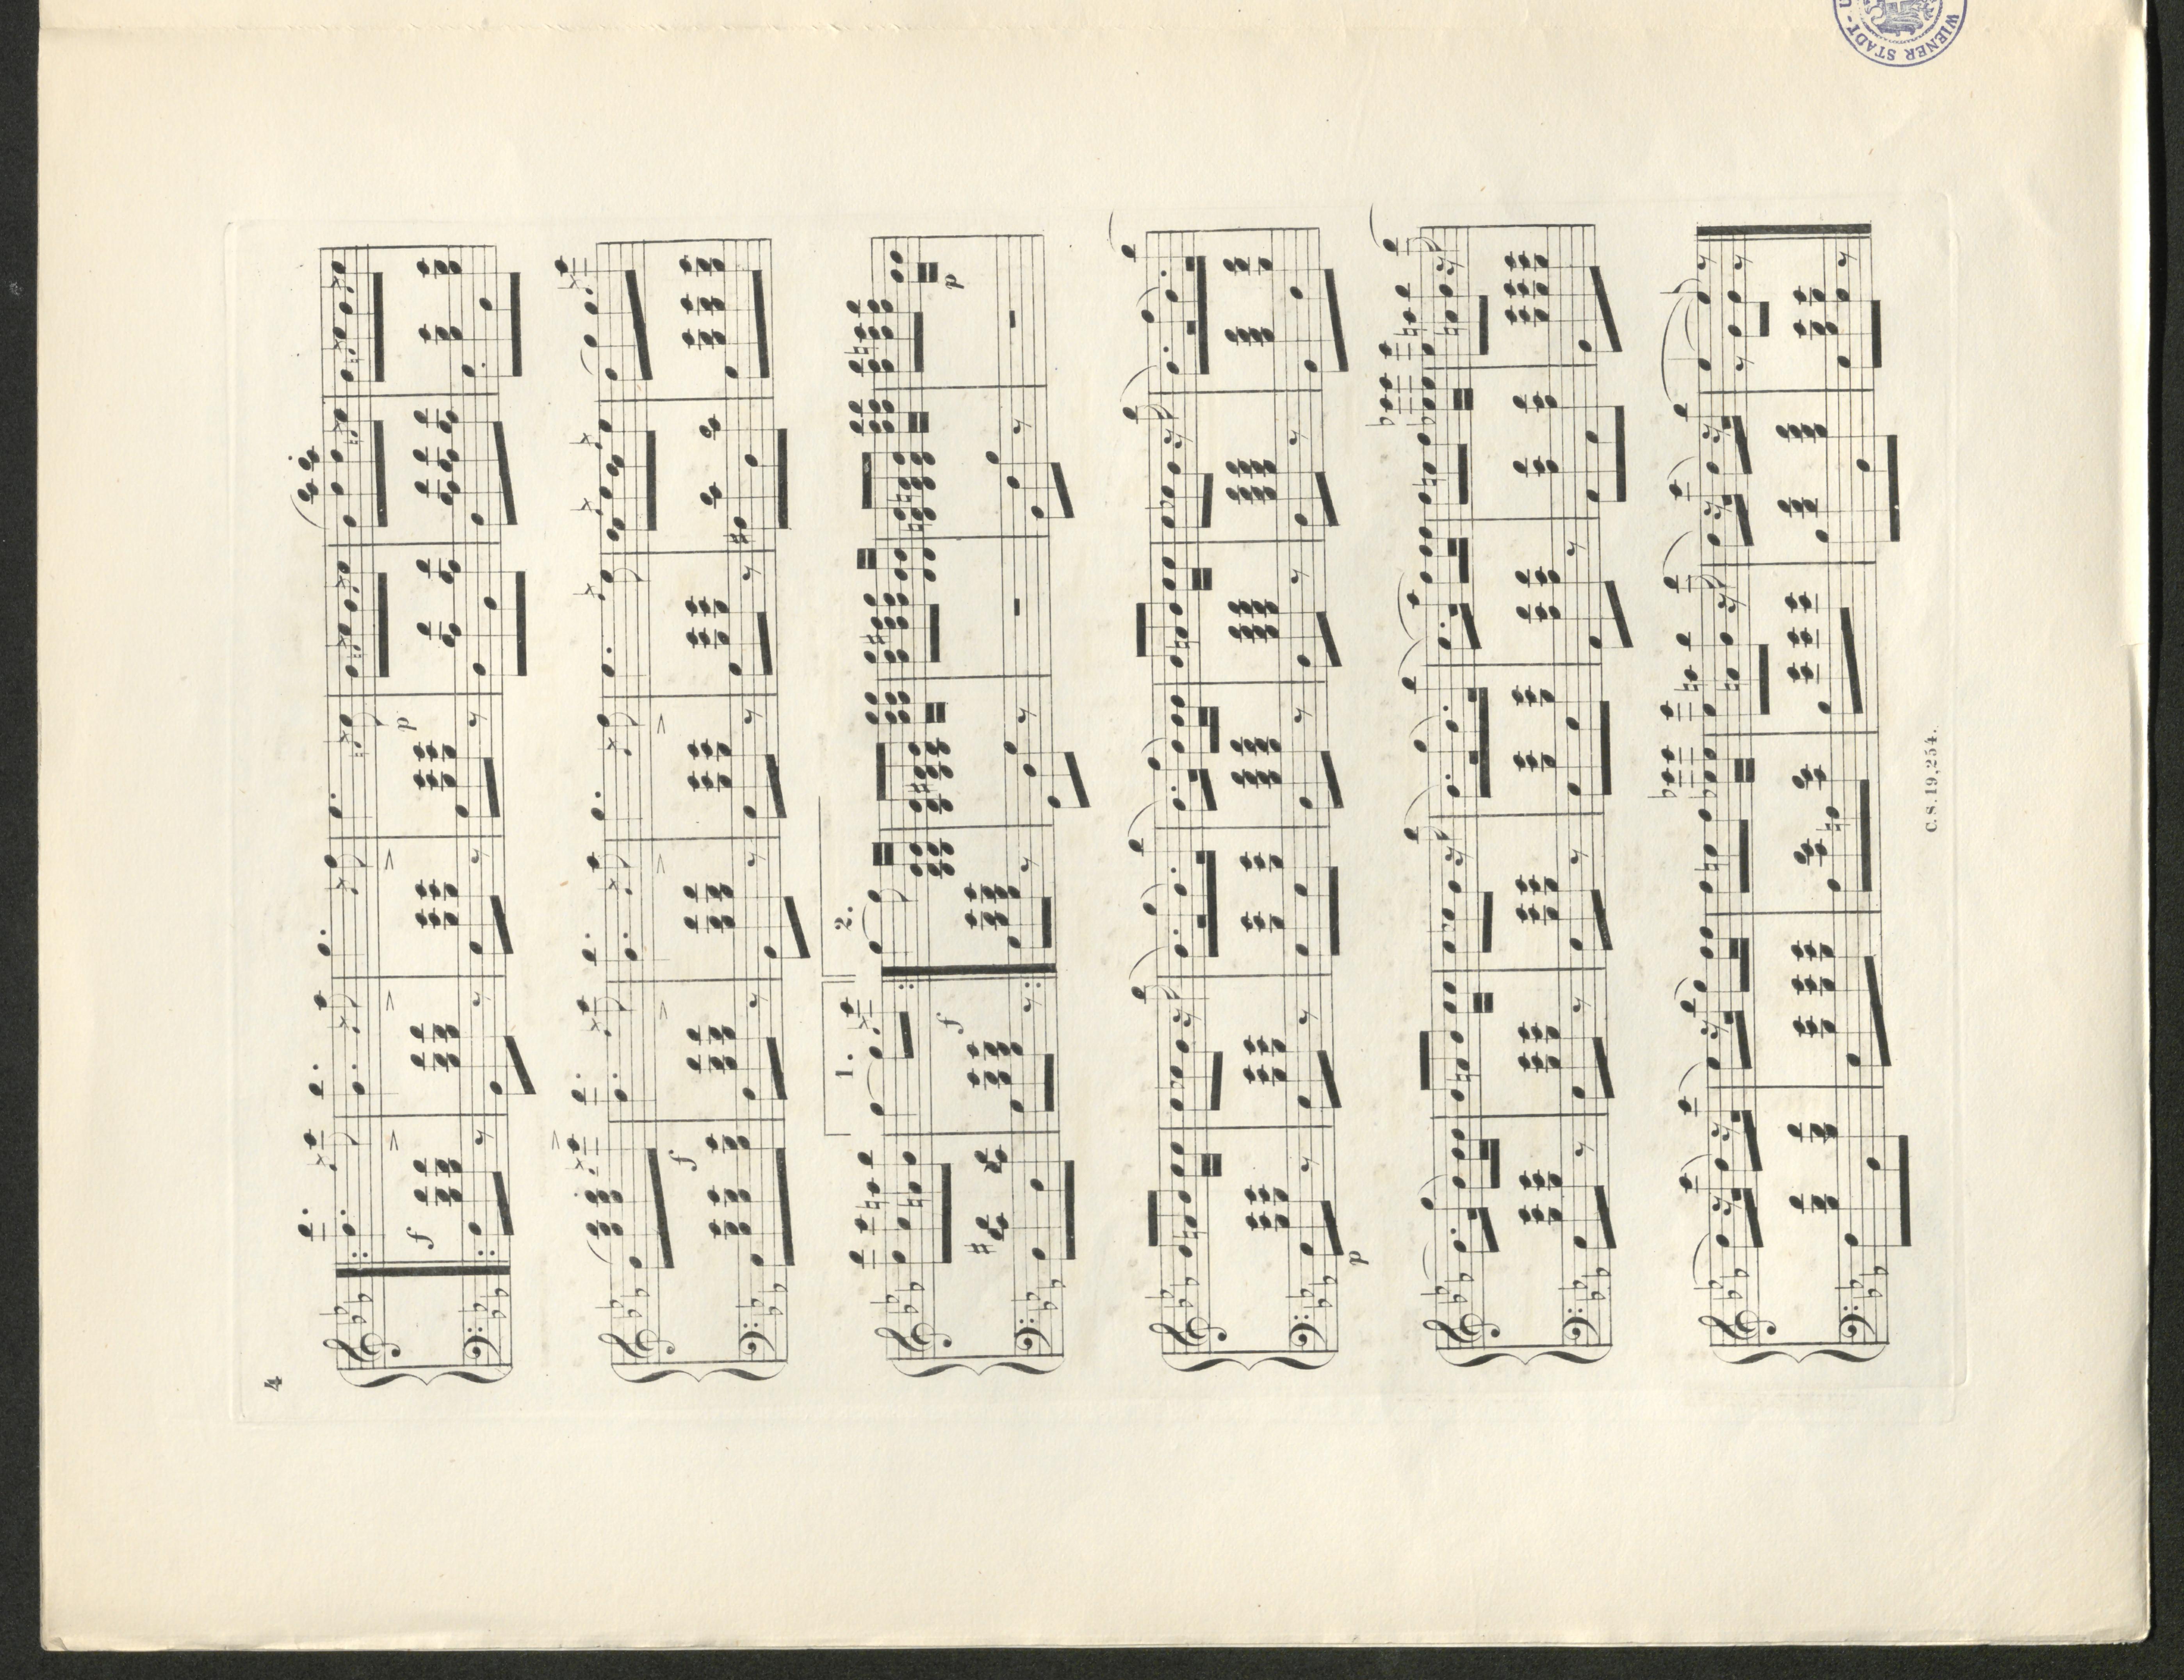 4
f
p
f
1.
2.
f
p
p
C.S.19,254.
WIENER STADT-